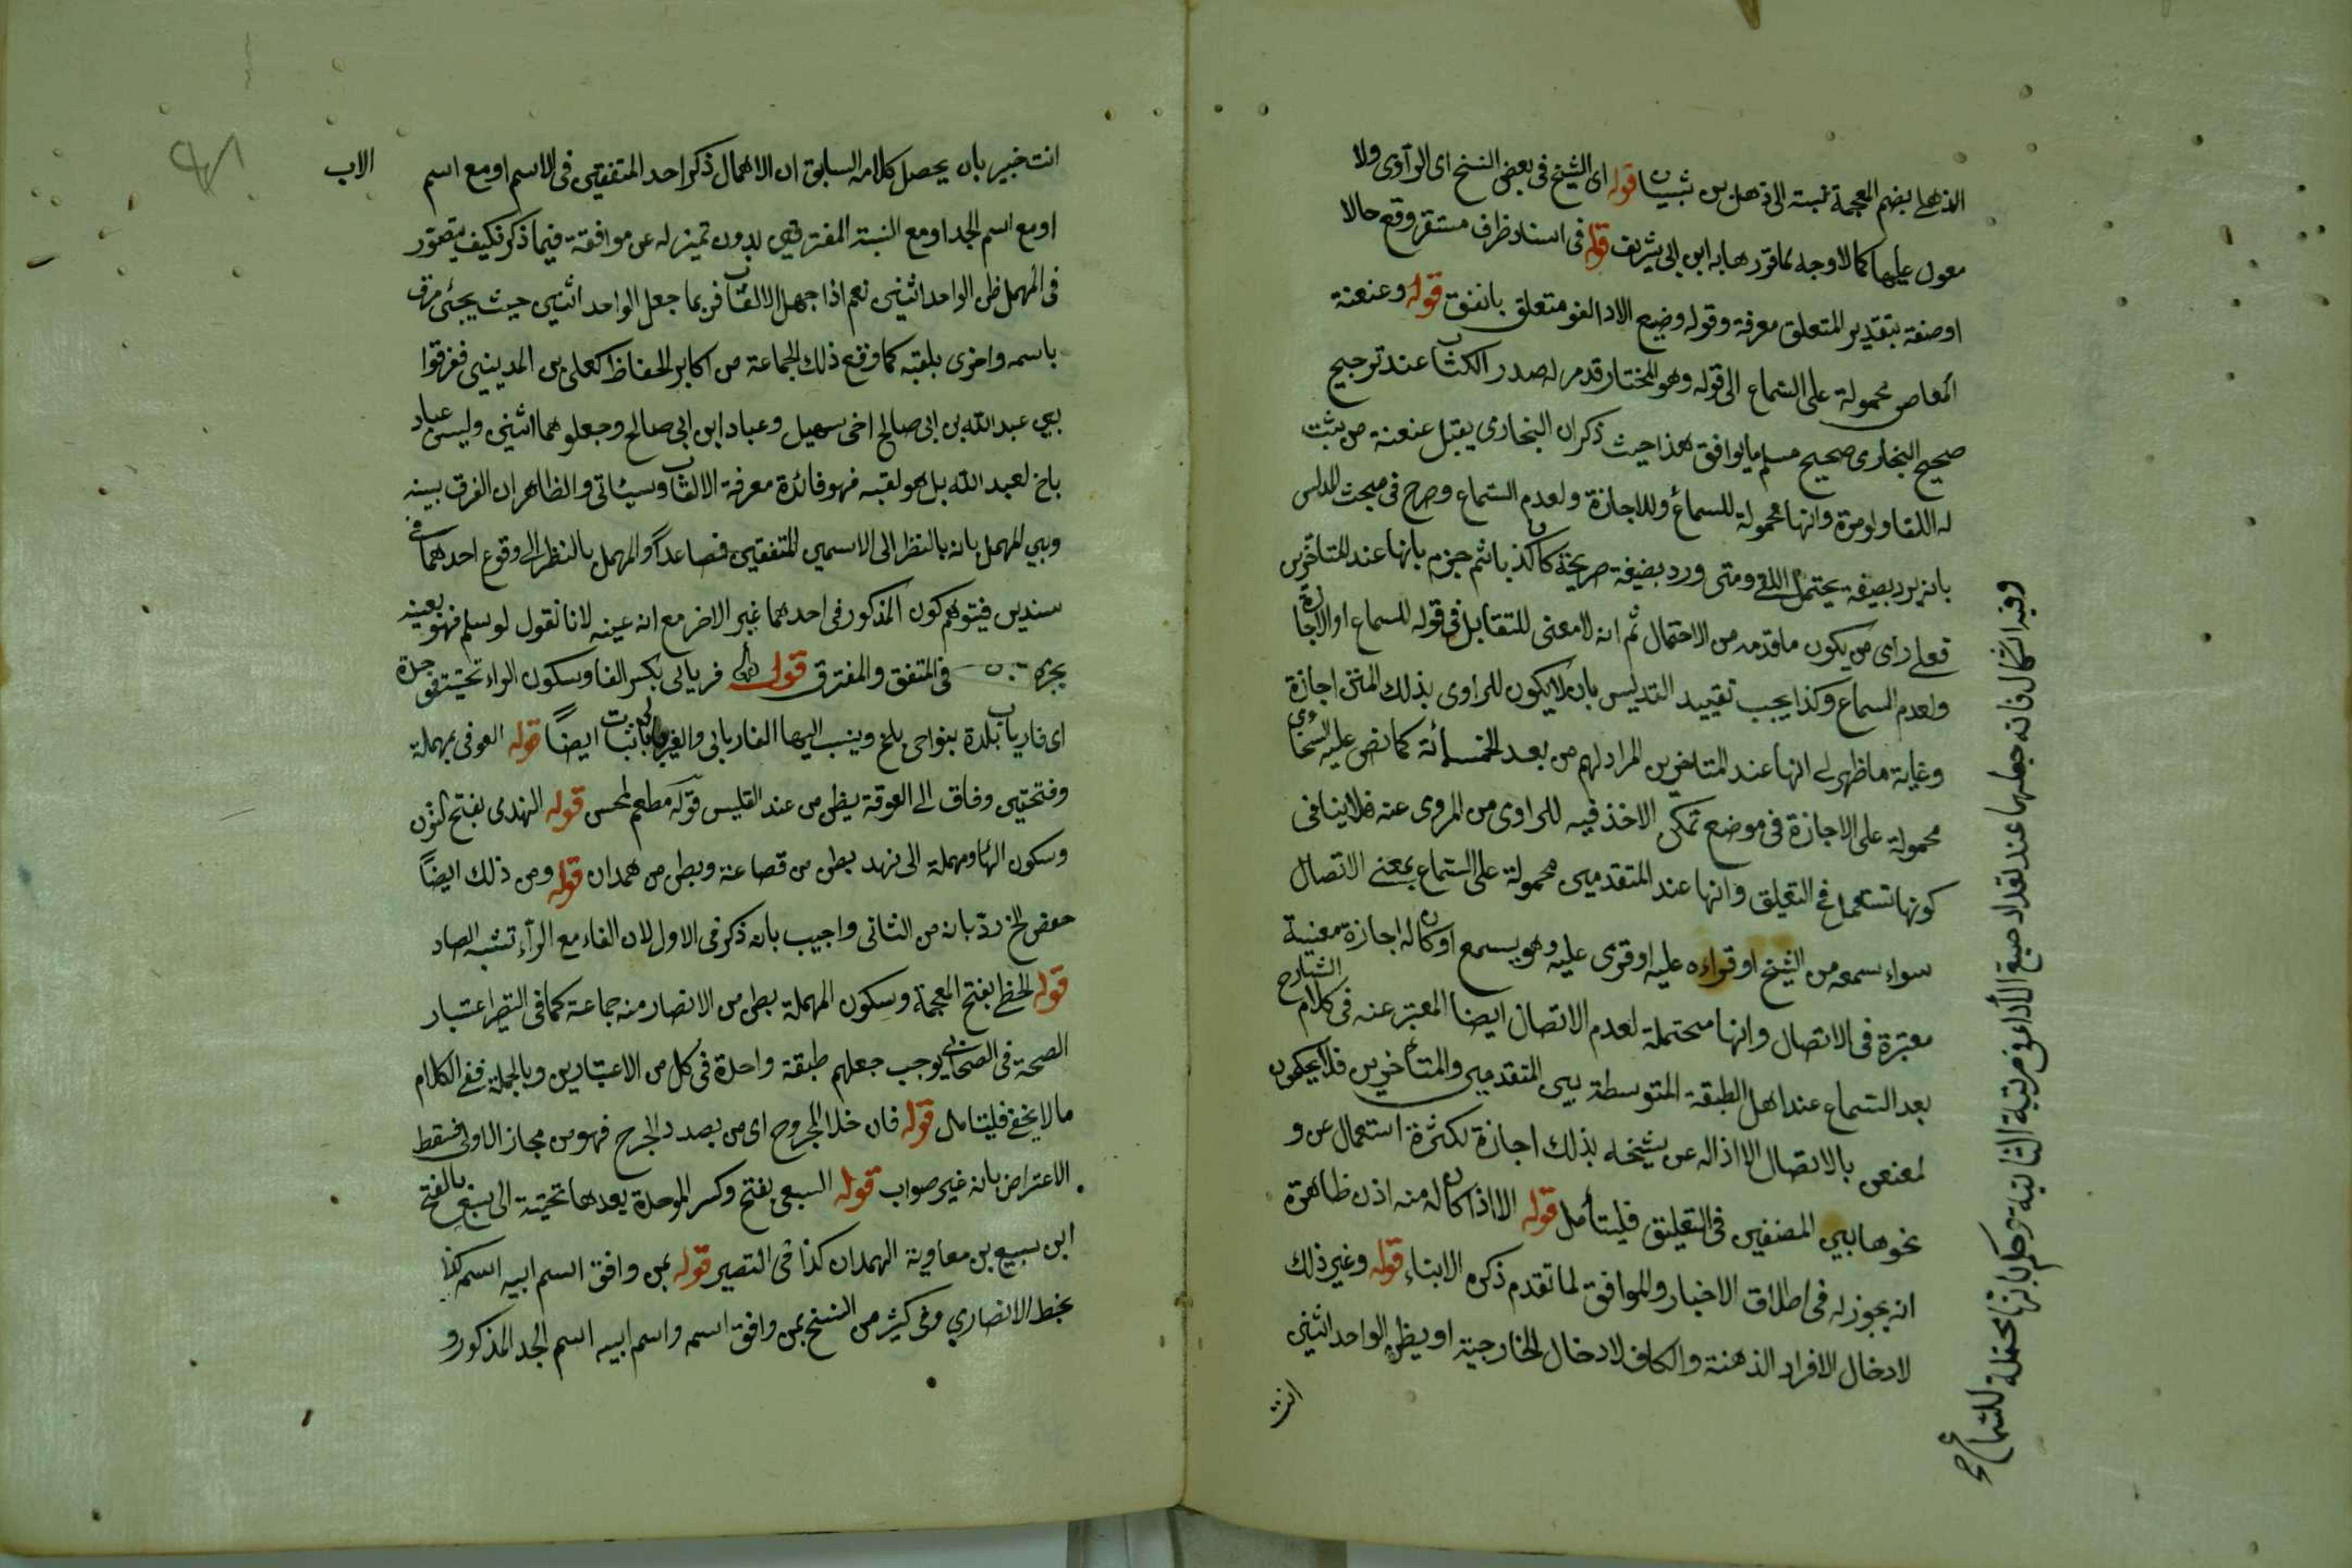 الذهلي بضم المعجمة نسبة الى ذهل بن شيبان قوله اى الشيخ فى بعض النسخ اى الراوى ولا
معول عليها كما لا وجه لما قررها به ابن ابى شريف قوله فى اسناد ظرف مستقر وقع حالا
او صفة بتقدير المتعلق معرفة وقوله وضيع الادا لغو متعلق باتفق قوله وعنعنة
المعاصر محمولة على السماع الى قوله وهو المختار قدم لصدر الكتاب عند ترجيح
صحيح البخارى صحيح مسلم ما يوافق هذا حيث ذكر ان البخارى يقبل عنعنة من يثبت
له اللقا ولو مرة وانها محمولة للسماع وللاجازة ولعدم السماع وصرح فى مبحث المدلس
بانه يرد بصيغة يحتمل اللقى ومتى ورد بصيغة صريحة كان كذبا ثم جزم بانها عند المتأخرين
فعلى راى من يكون ما قدمه من الاحتمال ثم انه لا معنى للتقابل فى قوله للسماع او الاجازة
ولعدم السماع وكذا يجب تقييد التدليس بان لا يكون للراوى بذلك المتن اجازة
وغاية ما ظهر لى انها عند المتاخرين المراد لهم من بعد الخمسمائة كما نص عليه السخاوى
محمولة على الاجازة فى موضع تمكن الاخذ فيه للراوى من المروى عنه فلا ينافى
كونها تستعمل فى التعليق وانها عند المتقدمين محمولة على السماع بمعنى الاتصال
سواء سمعه من الشيخ او قراءه عليه او قرى عليه وهو يسمع او كان له اجازة معينة
معتبرة فى الاتصال وانها محتملة لعدم الاتصال ايضا المعبر عنه فى كلام الشارح
بعد السماع عند اهل الطبقة المتوسطة بين المتقدمين والمتأخرين فلا يحكمون
لمعنعن بالاتصال الا اذا له عن شيخه بذلك اجازة لكثرة استعمال عن و
نحوها بين المصنفين فى التعليق فليتأمل قوله الا اذا كان له منه اذن ظاهرة
انه يجوز له فى اطلاق الاخبار والموافق لما تقدم ذكره الابناء قوله وغير ذلك
لادخال الافراد الذهنة والكاف لادخال الخارجية او يظن الواحد اثنين
انت
وفيه اشكال فانه جعلها عند تعداد صيغ الأداء فى مرتبة الثانية وحكم بانها محتملة للسماع
انت خبير بان يحصل كلامه السابق ان الاهمال ذكر احد المتفقين فى الاسم او مع اسم الاب
او مع اسم الجد او مع النسبة المفترقين بدون تميز له عن موافقة فيما ذكر فكيف يتصور
فى المهمل ظن الواحد اثنين نعم اذا جهل الالقاب فربما جعل الواحد اثنين حيث يجئ مرة
باسمه واخرى بلقبه كما وقع ذلك لجماعة من اكابر الحفاظ كعلى بن المدينى ففرقوا
بين عبد الله بن ابى صالح اخى سهيل وعباد ابن ابى صالح وجعلوهما اثنين وليس عباد
باخ لعبد الله بل هو لقبه فهو فائدة معرفة الالقاب وسيئاتى والظاهر ان الفرق بينه
وبين المهمل بانه بالنظر الى الاسمين المتفقين فصاعدًا والمهمل بالنظر الى وقوع احدهما فى
سندين فيتوهم كون المذكور فى احدهما غير الاخر مع انه عينه لانا نقول لو سلم فهو بعينه
يجرى فى المتفق والمفترق قوله فريابى بكسر الفا وسكون الراء تحتية
اى فارياب بلدة بنواحى بلخ وينسب اليها الفاريابى ايضاً قوله العوقى بمهملة
وفتحتين وقاف الى العوقة بطن من عبد القيس قوله قوله النهدى بفتح النون
وسكون الها ومهملة الى نهد بطن من قضاعة وبطن من همدان قوله ومن ذلك ايضاً
حفص الخ ردّ بانه من الثانى واجيب بان ذكر فى الاول لان الفاء مع الرآء تشبه الصاد
قوله الخطى بفتح المعجمة وسكون المهملة بطن من الانصار منه جماعة كما فى اعتبار
الصحة فى الصحابى يوجب جعلهم طبقة واحدة فى كل من الاعتبارين وبالجملة ففى الكلام
ما لا يخفى فليتامل قوله فان خلا المجروح اى من بصدد الجرح فهو من مجاز الاول فسقط
الاعتراض بانه غير صواب قوله السبيعى بفتح وكسر الموحدة بعدها تحتية الى سبيع بالفتح
ابن سبيع بن معاوية الهمدان كذا فى قوله بمن وافق اسم ابيه اسم كذا
بخط الانصاري وفى كثير من النسخ بمن وافق اسمه واسم ابيه اسم الجد المذكور و